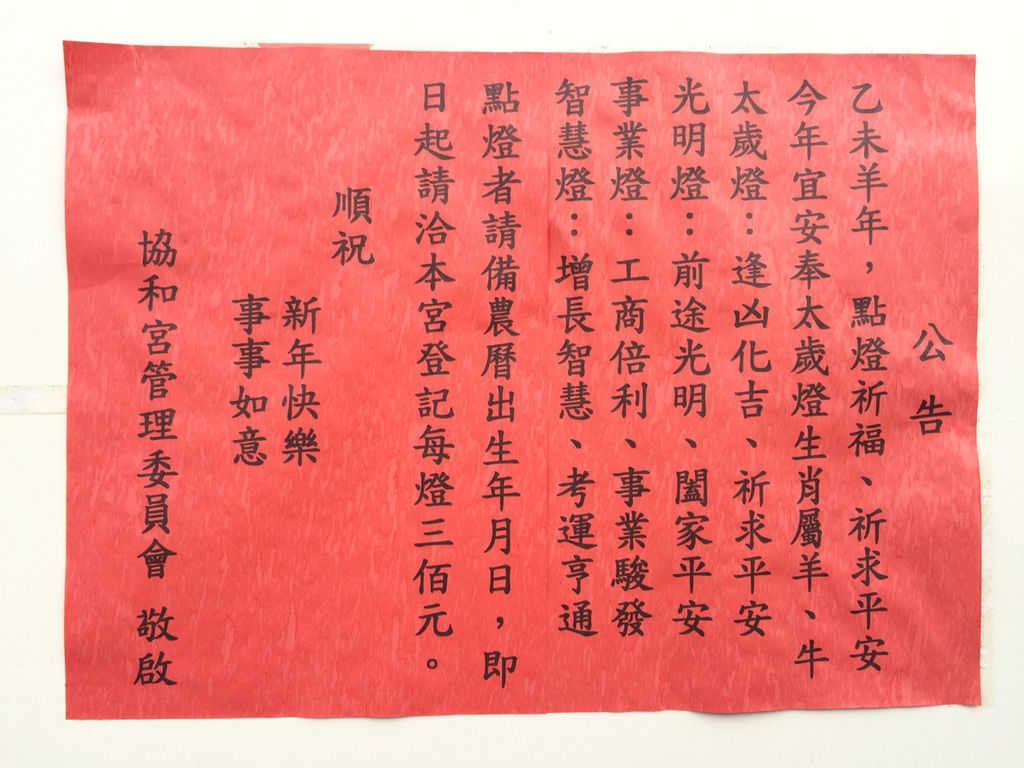 公告
乙未羊年，點燈祈福、祈求平安
今年宜安奉太歲燈生肖屬羊、牛
太歲燈：逢凶化吉、祈求平安
光明燈：前途光明、闔家平安
事業燈：工商倍利、事業駿發
智慧燈：增長智慧、考運亨通
點燈者請備農曆出生年月日，即
日起請洽本宮登記每燈三佰元。
順祝
新年快樂
事事如意
協和宮管理委員會 敬啟